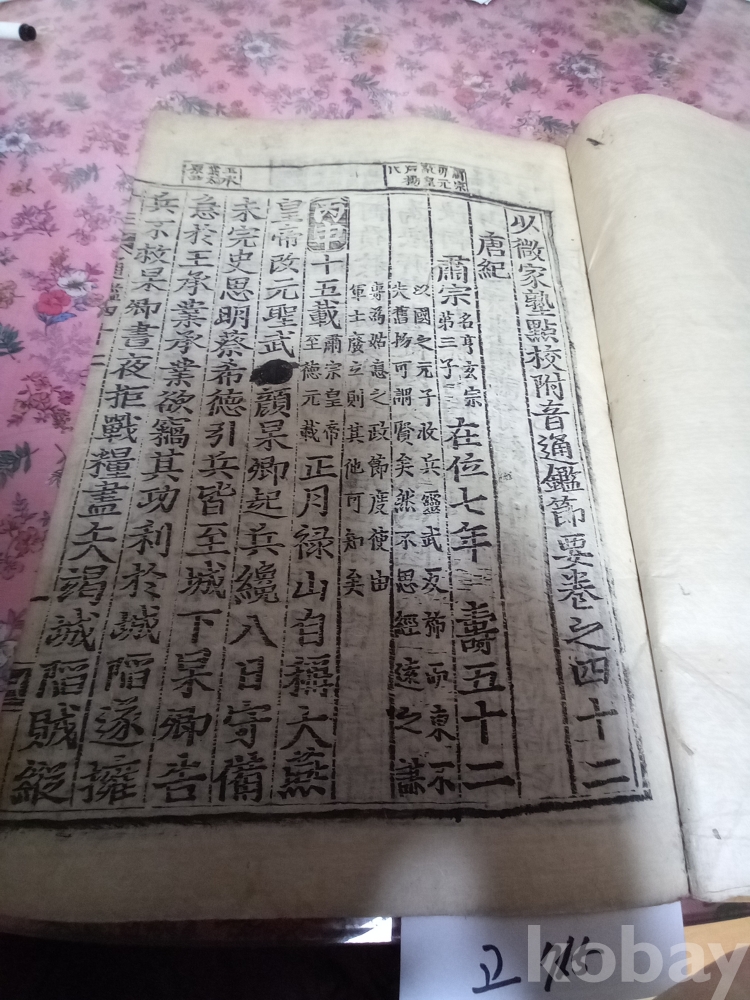 少微家塾點校附音通鑑節要卷之四十二
唐紀
肅宗 名亨玄宗第三子 在位七年 壽五十二
以國之元子收兵靈武反旆而東不
失舊物可謂賢矣然不思經遠之謀
專爲姑息之政節度使由
軍士廢立則其他可知矣
丙申 十五載 肅宗皇帝至德元載 正月禄山自稱大燕
皇帝改元聖武 顔杲卿起兵纔八日守備
未完史思明蔡希德引兵皆至城下杲卿告
急於王承業承業欲竊其功利於城陷遂擁
兵不救杲卿晝夜拒戰糧盡矢竭城陷賊縱
通鑑四十二
고
kobay